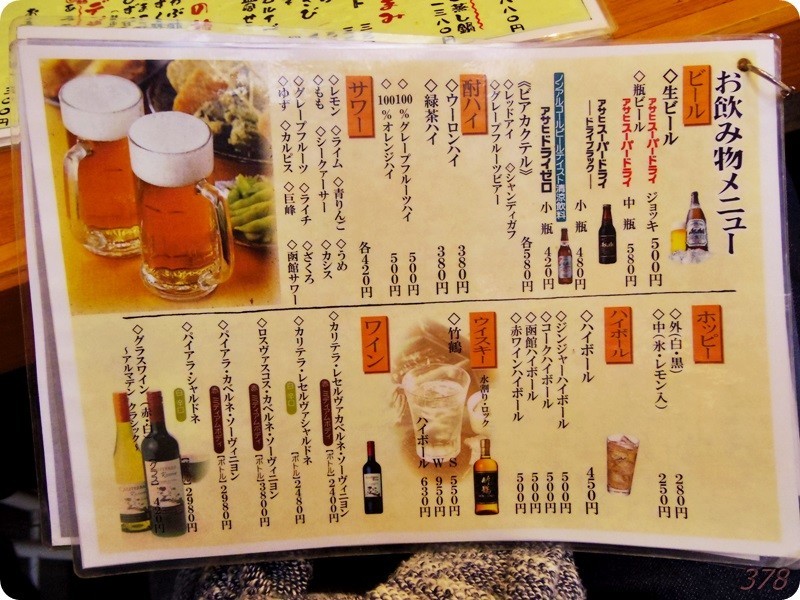 お飲み物メニュー
ビール
◇生ビール
アサヒスーパードライ ジョッキ 500円
◇瓶ビール
アサヒスーパードライ 中瓶 580円
アサヒスーパードライ
―ドライブラック― 小瓶 480円
ノンアルコールビールテイスト清涼飲料
アサヒドライゼロ 小瓶 420円
《ビアカクテル》 各580円
◇レッドアイ ◇シャンディガフ
◇グレープフルーツビアー
酎ハイ
◇ウーロンハイ 380円
◇緑茶ハイ 380円
◇100%グレープフルーツハイ 500円
◇100%オレンジハイ 500円
サワー
各420円
◇レモン ◇ライム ◇青りんご ◇うめ
◇もも ◇シークァーサー ◇カシス
◇グレープフルーツ ◇ライチ ◇ざくろ
◇ゆず ◇カルピス ◇巨峰 ◇函館サワー
ホッピー
◇外(白・黒) 280円
◇中(氷・レモン入) 250円
ハイボール
◇ハイボール 450円
◇ジンジャーハイボール 500円
◇コークハイボール 500円
◇函館ハイボール 500円
◇赤ワインハイボール 500円
ウイスキー
水割り・ロック
◇竹鶴 S 550円
W 950円
ハイボール 630円
ワイン
◇カリテラ・レセルヴァカベルネ・ソーヴィニヨン
[ボトル] 2400円
◇カリテラ・レセルヴァシャルドネ
[ボトル] 2480円
◇ロスヴァスコス・カベルネ・ソーヴィニヨン
[ボトル] 3800円
◇バイアラ・カベルネ・ソーヴィニヨン
[ボトル] 2980円
◇バイアラ・シャルドネ
2980円
◇グラスワイン(赤・白)
～アルマデン クラシック～
Asahi
378